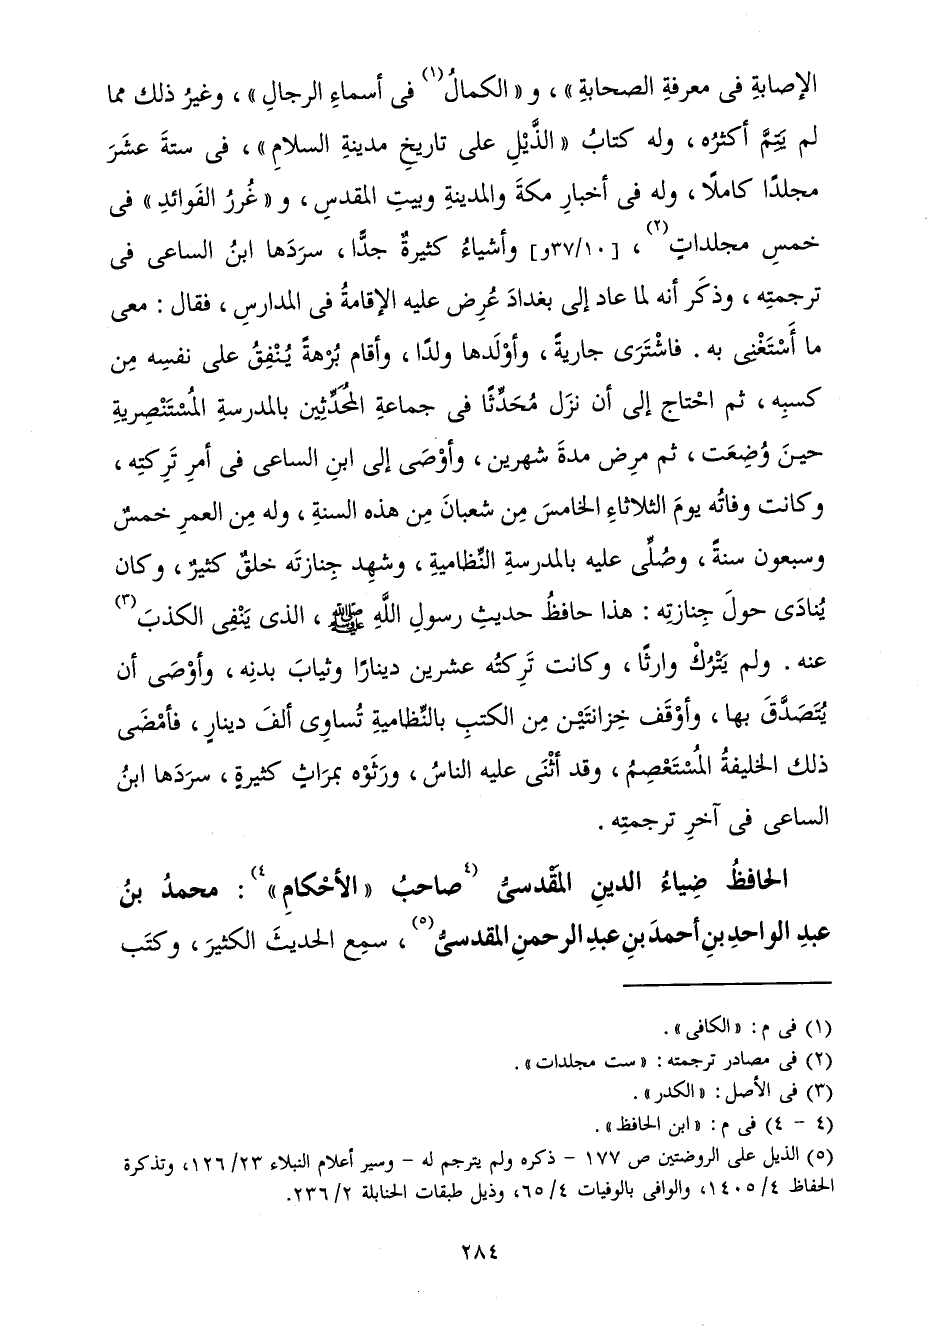 الإصابةِ فى معرفةِ الصحابةِ» ، و «الكمالُ(١) فى أسماءِ الرجالِ» ، وغيرُ ذلك مما
لم يَتِمَّ أكثرُه ، وله كتابُ «الذَّيْلِ على تاريخِ مدينةِ السلامِ» ، فى ستةَ عشَرَ
مجلدًا كاملًا ، وله فى أخبارِ مكةَ والمدينةِ وبيتِ المقدسِ ، و «غُررُ الفَوائدِ» فى
خمسِ مجلداتٍ(٢) ، [٣٧/١٠و] وأشياءُ كثيرةٌ جدًّا ، سرَدَها ابنُ الساعى فى
ترجمتِه ، وذكَر أنه لما عاد إلى بغدادَ عُرِض عليه الإقامةُ فى المدارسِ ، فقال : معى
ما أَسْتَغْنِى به . فاشْتَرَى جاريةً ، وأوْلَدها ولدًا ، وأقام بُرْهةً يُنْفِقُ على نفسِه مِن
كسبِه ، ثم احْتاج إلى أن نزَل مُحَدِّثًا فى جماعةِ المُحَدِّثِين بالمدرسةِ المُسْتَنْصِريةِ
حينَ وُضِعَت ، ثم مرِض مدةَ شهرين ، وأوْصَى إلى ابنِ الساعى فى أمرِ تَرِكتِه ،
وكانت وفاتُه يومَ الثلاثاءِ الخامسَ مِن شعبانَ مِن هذه السنةِ ، وله مِن العمرِ خمسٌ
وسبعون سنةً ، وصُلِّى عليه بالمدرسةِ النِّظاميةِ ، وشهِد جِنازتَه خلقٌ كثيرٌ ، وكان
يُنادَى حولَ جِنازتِه : هذا حافظُ حديثِ رسولِ اللَّهِ ﷺ ، الذى يَنْفِى الكذبَ(٣)
عنه . ولم يَتْرُكْ وارثًا ، وكانت تَرِكتُه عشرين دينارًا وثيابَ بدنِه ، وأوْصَى أن
يُتَصَدَّقَ بها ، وأوْقَف خِزانتَيْن مِن الكتبِ بالنِّظاميةِ تُساوِى ألفَ دينارٍ ، فأمْضَى
ذلك الخليفةُ المُسْتَعْصِمُ ، وقد أثْنَى عليه الناسُ ، ورَثَوْه بمَراثٍ كثيرةٍ ، سرَدَها ابنُ
الساعى فى آخرِ ترجمتِه .
الحافظُ ضِياءُ الدينِ المَقْدسىُّ (٤صاحبُ «الأحْكامِ»٤) : محمدُ بنُ
عبدِ الواحدِ بنِ أحمدَ بنِ عبدِ الرحمنِ المقدسىُّ(٥) ، سمِع الحديثَ الكثيرَ ، وكتَب
(١) فى م : «الكافى» .
(٢) فى مصادر ترجمته : «ست مجلدات» .
(٣) فى الأصل : «الكدر» .
(٤ - ٤) فى م : «ابن الحافظ» .
(٥) الذيل على الروضتين ص ١٧٧ - ذكره ولم يترجم له - وسير أعلام النبلاء ١٢٦/٢٣، وتذكرة
الحفاظ ١٤٠٥/٤، والوافى بالوفيات ٦٥/٤، وذيل طبقات الحنابلة ٢٣٦/٢.
٢٨٤